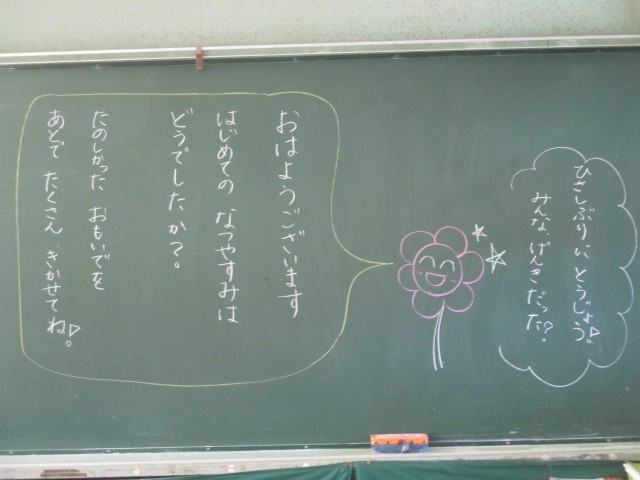 ひさしぶりに とうじょう♡。
みんな、げんきだった?。
おはようございます
はじめての なつやすみは
どうでしたか?。
たのしかった おもいでを
あとで たくさん きかせてね♡。